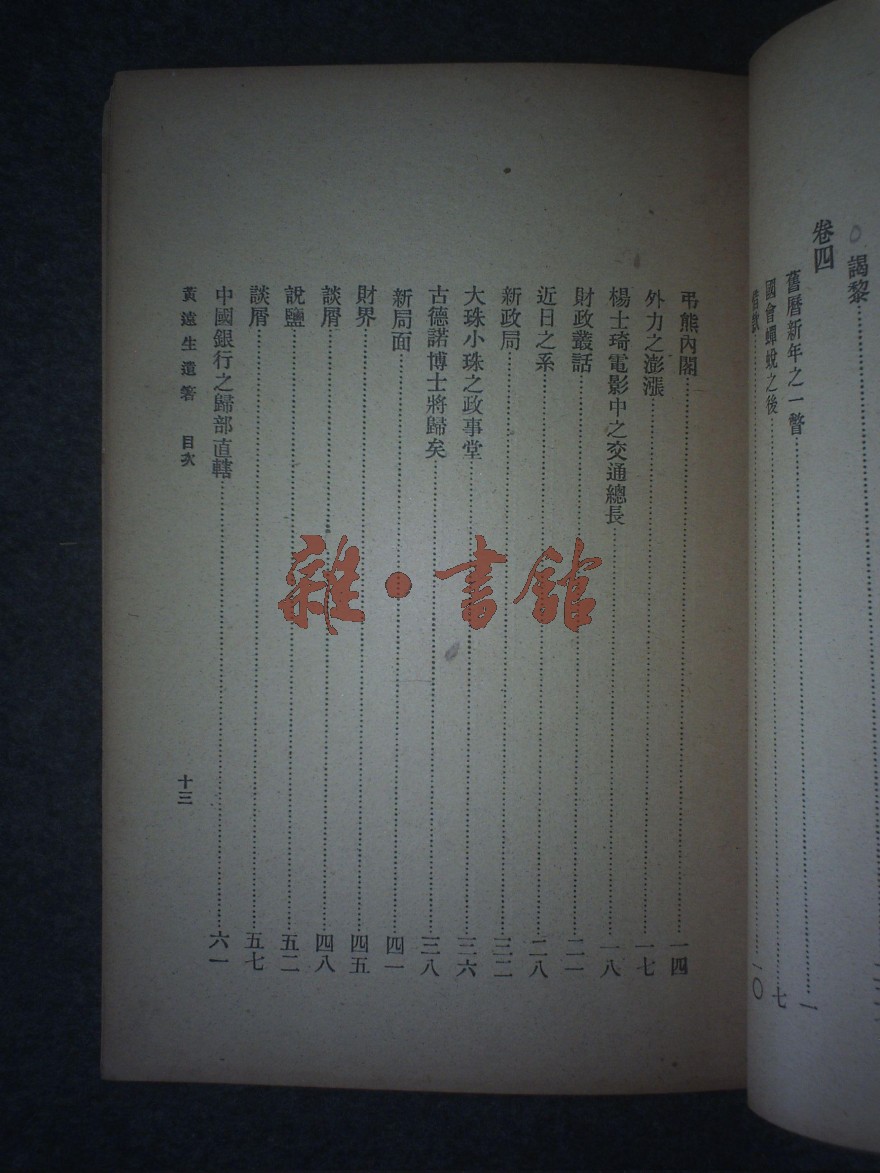 謁黎
卷四
舊曆新年之一瞥 一
國會蟬蛻之後 七
一〇
弔熊內閣 一四
外力之澎漲 一七
楊士琦電影中之交通總長 一八
財政叢話 二一
近日之系 二八
新政局 三二
大珠小珠之政事堂 三六
古德諾博士將歸矣 三八
新局面 四一
財界 四五
談屑 四八
說鹽 五二
談屑 五七
中國銀行之歸部直轄 六一
黃遠生遺箸 目次 十三
雜·書館